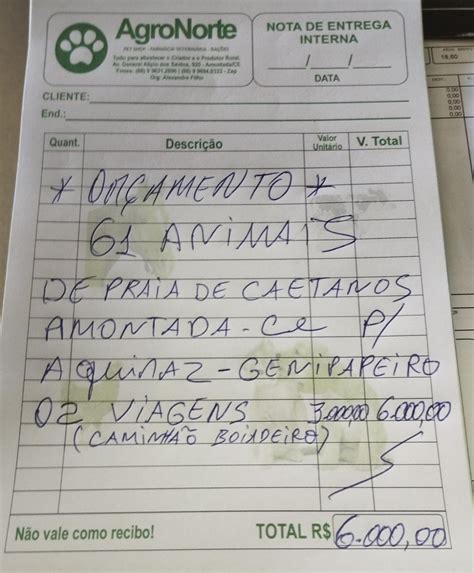 AgroNorte
PET SHOP - FARMÁCIA VETERINÁRIA - RAÇÕES
Tudo para abastecer o Criador e o Produtor Rural.
Av. General Alípio dos Santos, 920 - Amontada/CE
Org: Alexandre Filho
NOTA DE ENTREGA
INTERNA
___/___/___
DATA
CLIENTE:
End.:
Quant. Descrição Valor Unitário V. Total
* ORÇAMENTO *
61 ANIMAIS
DE PRAIA DE CAETANOS
AMONTADA - CE P/
AQUIRAZ - GENIPAPEIRO
02 VIAGENS 3.000,00 6.000,00
(CAMINHÃO BOIADEIRO)
Não vale como recibo! TOTAL R$ 6.000,00